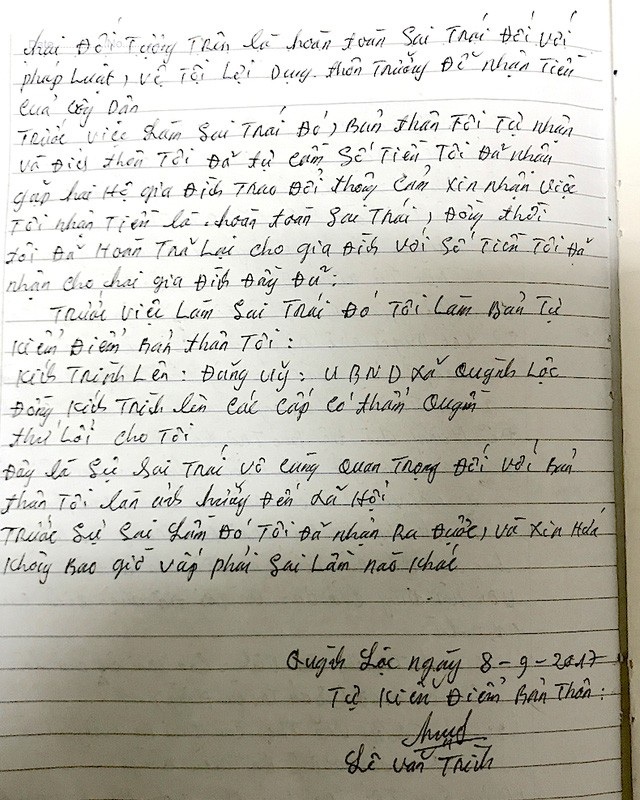 hai Đối Tượng Trên là hoàn toàn Sai Trái Đối với
pháp Luật, về Tội Lợi Dụng thôn Trưởng Để nhận Tiền
của Cây Dân
Trước việc Làm Sai Trái Đó, Bản thân Tôi Tự nhận
và Đích thân Tôi Đã tự Cầm Số Tiền Tôi Đã nhận
gặp hai Hộ gia Đình Trao Đổi thông Cảm Xin nhận việc
Tôi nhận Tiền là hoàn toàn Sai Trái, Đồng thời
tôi Đã Hoàn Trả Lại cho gia Đình với Số Tiền Tôi Đã
nhận cho hai gia Đình Đầy Đủ:
Trước việc Làm Sai Trái Đó Tôi Làm Bản Tự
Kiểm Điểm Bản thân Tôi:
Kính Trình Lên: Đảng uỷ: UBND Xã Quỳnh Lộc
Đồng Kính Trình lên các cấp có thẩm Quyền
thứ Lỗi cho Tôi
Đây là Sự Sai Trái vô cùng Quan Trọng Đối với Bản
thân Tôi lẫn ảnh hưởng Đến Xã Hội
Trước Sự Sai Lầm Đó Tôi Đã nhận Ra Được, và Xin Hứa
Không Bao giờ vấp phải Sai Lầm nào Khác
Quỳnh Lộc ngày 8-9-2017
Tự Kiểm Điểm Bản Thân:
Lê Văn Trình